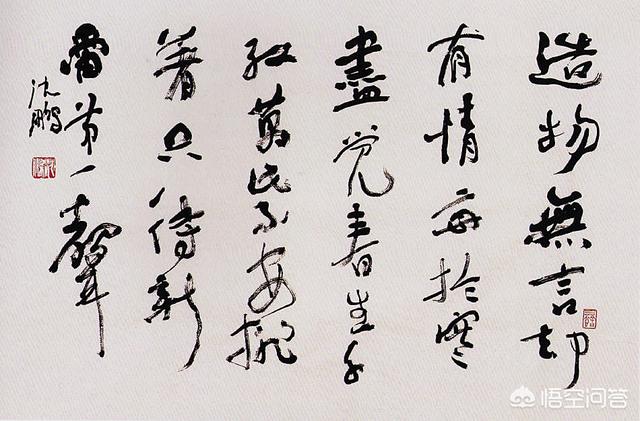 造物無言却
有情每於寒
盡觉春生千
红萬紫安排
着只待新
雷第一聲
沈鹏
悟空问答